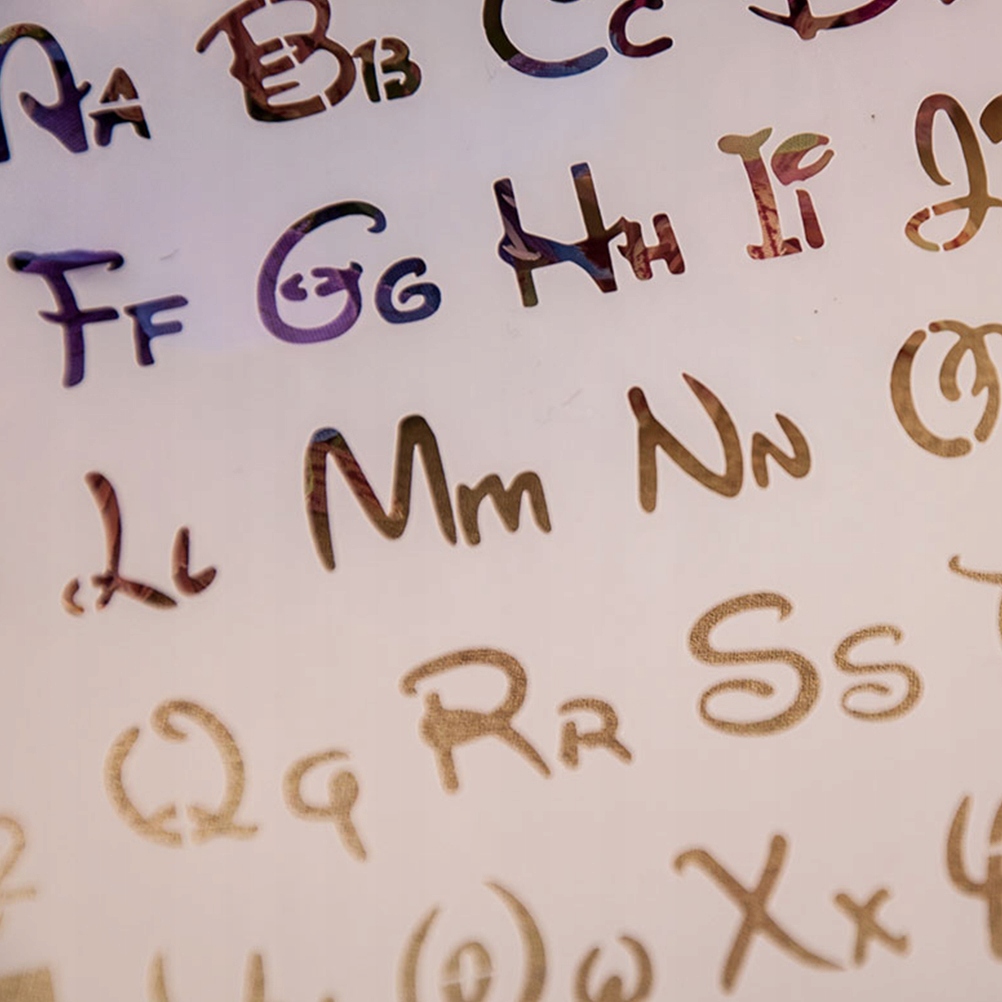 Aa Bb Cc
Ff Gg Hh Ii J
Ll Mm Nn O
Qq Rr Ss
2 Ww Xx